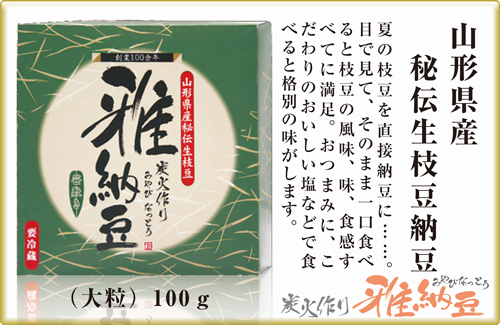 山形県産
秘伝生枝豆納豆
夏の枝豆を直接納豆に……。
目で見て、そのまま一口食べ
ると枝豆の風味、味、食感す
べてに満足。おつまみに、こ
だわりのおいしい塩などで食
べると格別の味がします。
創業100余年
山形県産秘伝生枝豆
雅納豆
炭火作り
みやびなっとう
要冷蔵
(大粒) 100g
炭火作り
雅納豆
みやびなっとう